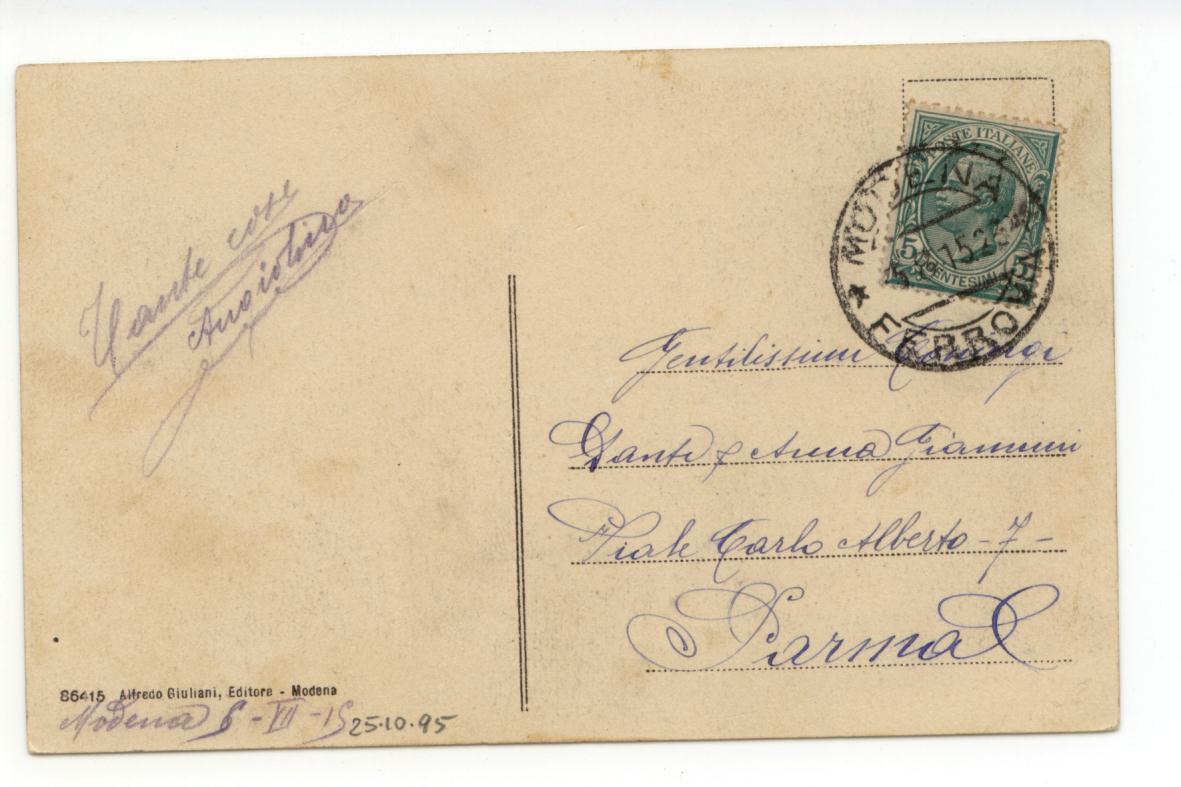 POSTE ITALIANE
5 CENTESIMI 5
MODENA
15.23
* FERROVIA
Tante cose
Angiolina
Gentilissimi Coniugi
Dante & Anna Giannini
Viale Carlo Alberto - 7 -
Parma
86415 Alfredo Giuliani, Editore - Modena
Modena 6 - XII - 15 25.10.95